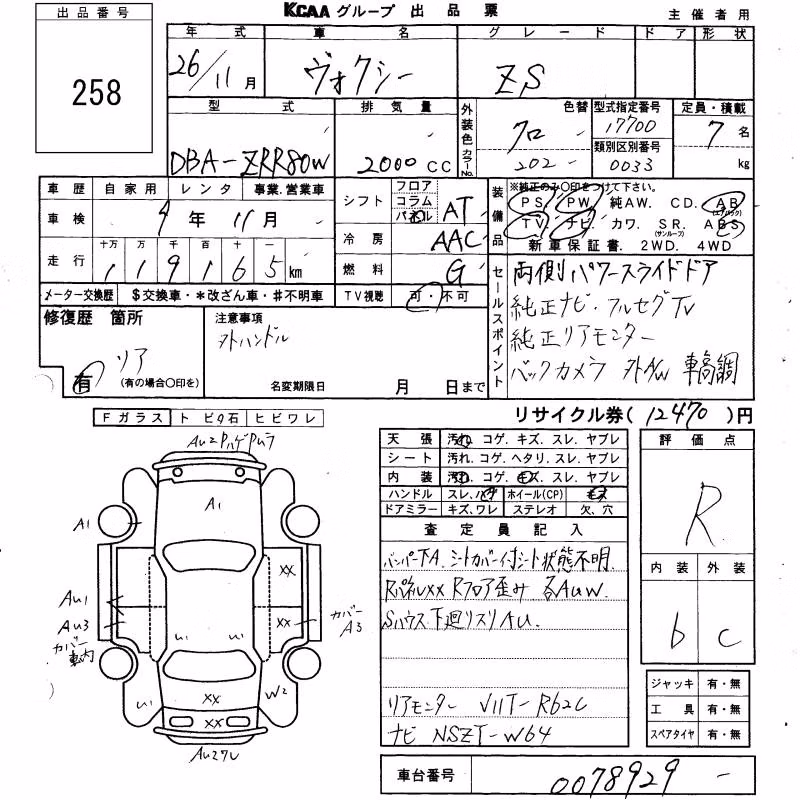 出品番号
258
KCAAグループ 出品票
主催者用
年式 車名 グレード ドア 形状
26/11月 ヴォクシー ZS
型式 排気量 外装色 色替 型式指定番号 定員・積載
DBA-ZRR80W 2000cc クロ 17700 7名
カラーNo. 202 類別区別番号 0033 kg
車歴 自家用 レンタ 事業.営業車
車検 9年11月
走行 十万 万 千 百 十 一
119165km
メーター交換歴 $交換車・*改ざん車・#不明車
シフト フロア コラム パネル AT
冷房 AAC
燃料 G
TV視聴 可・不可
装備品 ※純正のみ○印をつけて下さい。
PS. PW. 純AW. CD. AB(エアバック)
TV. ナビ. カワ. SR.(サンルーフ) ABS
新車保証書. 2WD. 4WD
セールスポイント
両側パワースライドドア
純正ナビ・フルセグTV
純正リアモニター
バックカメラ 外AW 車高調
修復歴 箇所
リア
有 (有の場合○印を)
注意事項
外ハンドル
名変期限日 月 日まで
リサイクル券(12470)円
Fガラス トビ石 ヒビワレ
A1
A1
Au1
Au3
カバー
車内
カバー
A3
XX
XX
XX
XX
W2
天張 汚れ. コゲ. キズ. スレ. ヤブレ
シート 汚れ. コゲ. ヘタリ. スレ. ヤブレ
内装 汚れ. コゲ. キズ. スレ. ヤブレ
ハンドル スレ. ハゲ ホイール(CP) キズ
ドアミラー キズ. ワレ ステレオ 欠、穴
査定員記入
バンパーTA. シートカバー付シート状態不明.
RパネルXX Rフロア歪み 各AuW
Sハウス下廻りスリAu.
リアモニター V11T-R62C
ナビ NSZT-W64
評価点
R
内装 外装
b c
ジャッキ 有・無
工具 有・無
スペアタイヤ 有・無
車台番号 0078929